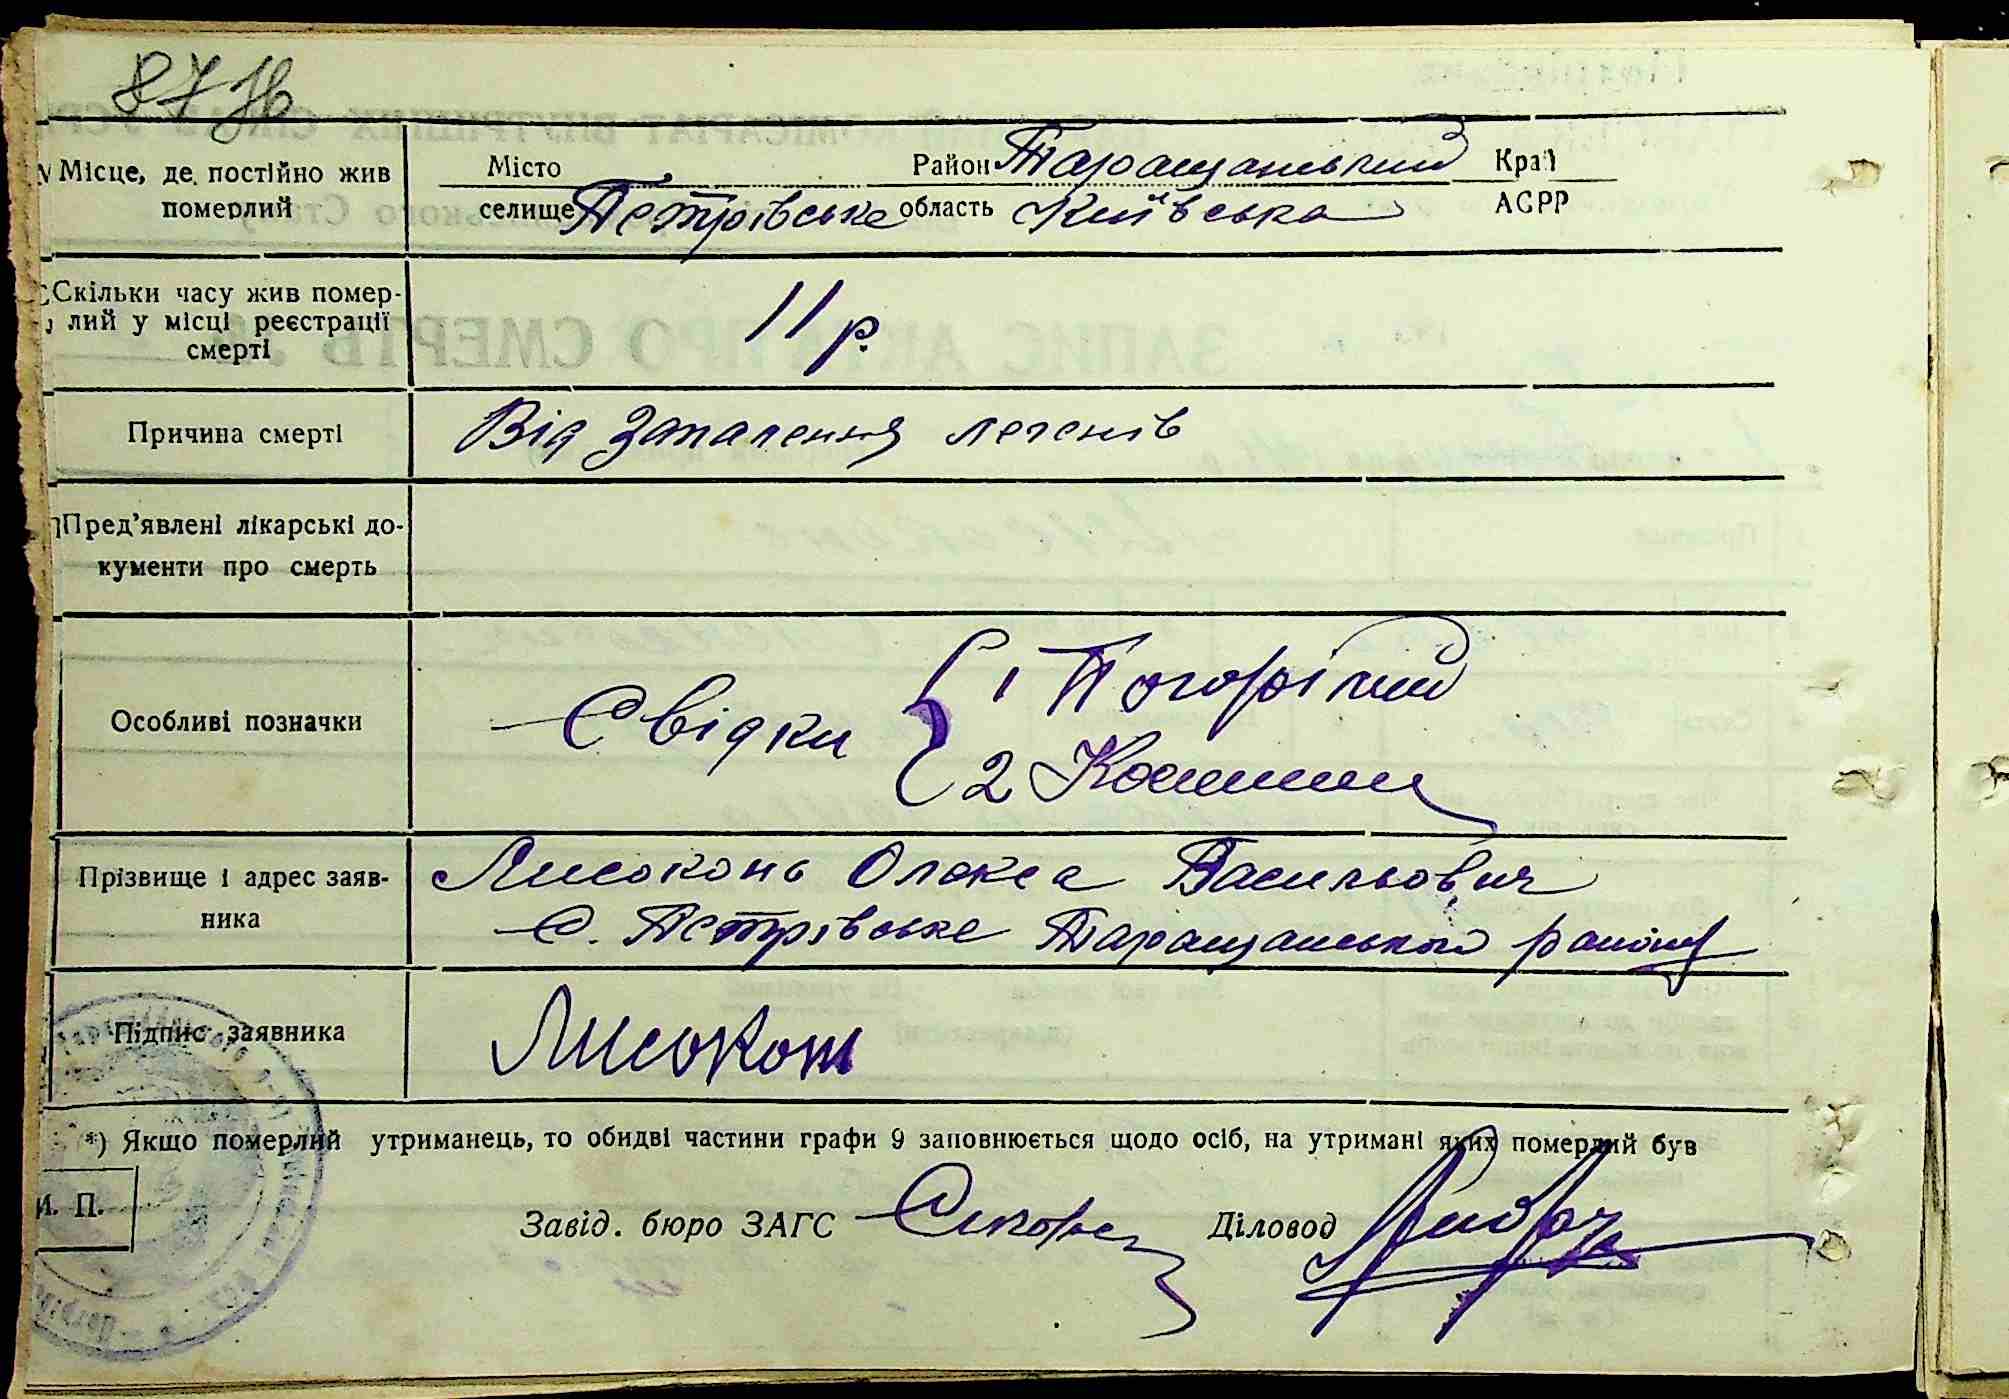 87
Місце, де постійно жив померлий
Місто Район Таращанський Край
селище Петрівське область Київська АСРР
Скільки часу жив помер-
лий у місці реєстрації
смерті
11 р.
Причина смерті
Від запалення легенів
Пред'явлені лікарські до-
кументи про смерть
Особливі позначки
Свідки { 1 Погорілий
2
Прізвище і адрес заяв-
ника
Лисоконь Олекса Васильович
с. Петрівське Таращанського району
Підпис заявника
Лисокон
*) Якщо померлий утриманець, то обидві частини графи 9 заповнюється щодо осіб, на утримані яких померлий був
М. П.
Завід. бюро ЗАГС Діловод